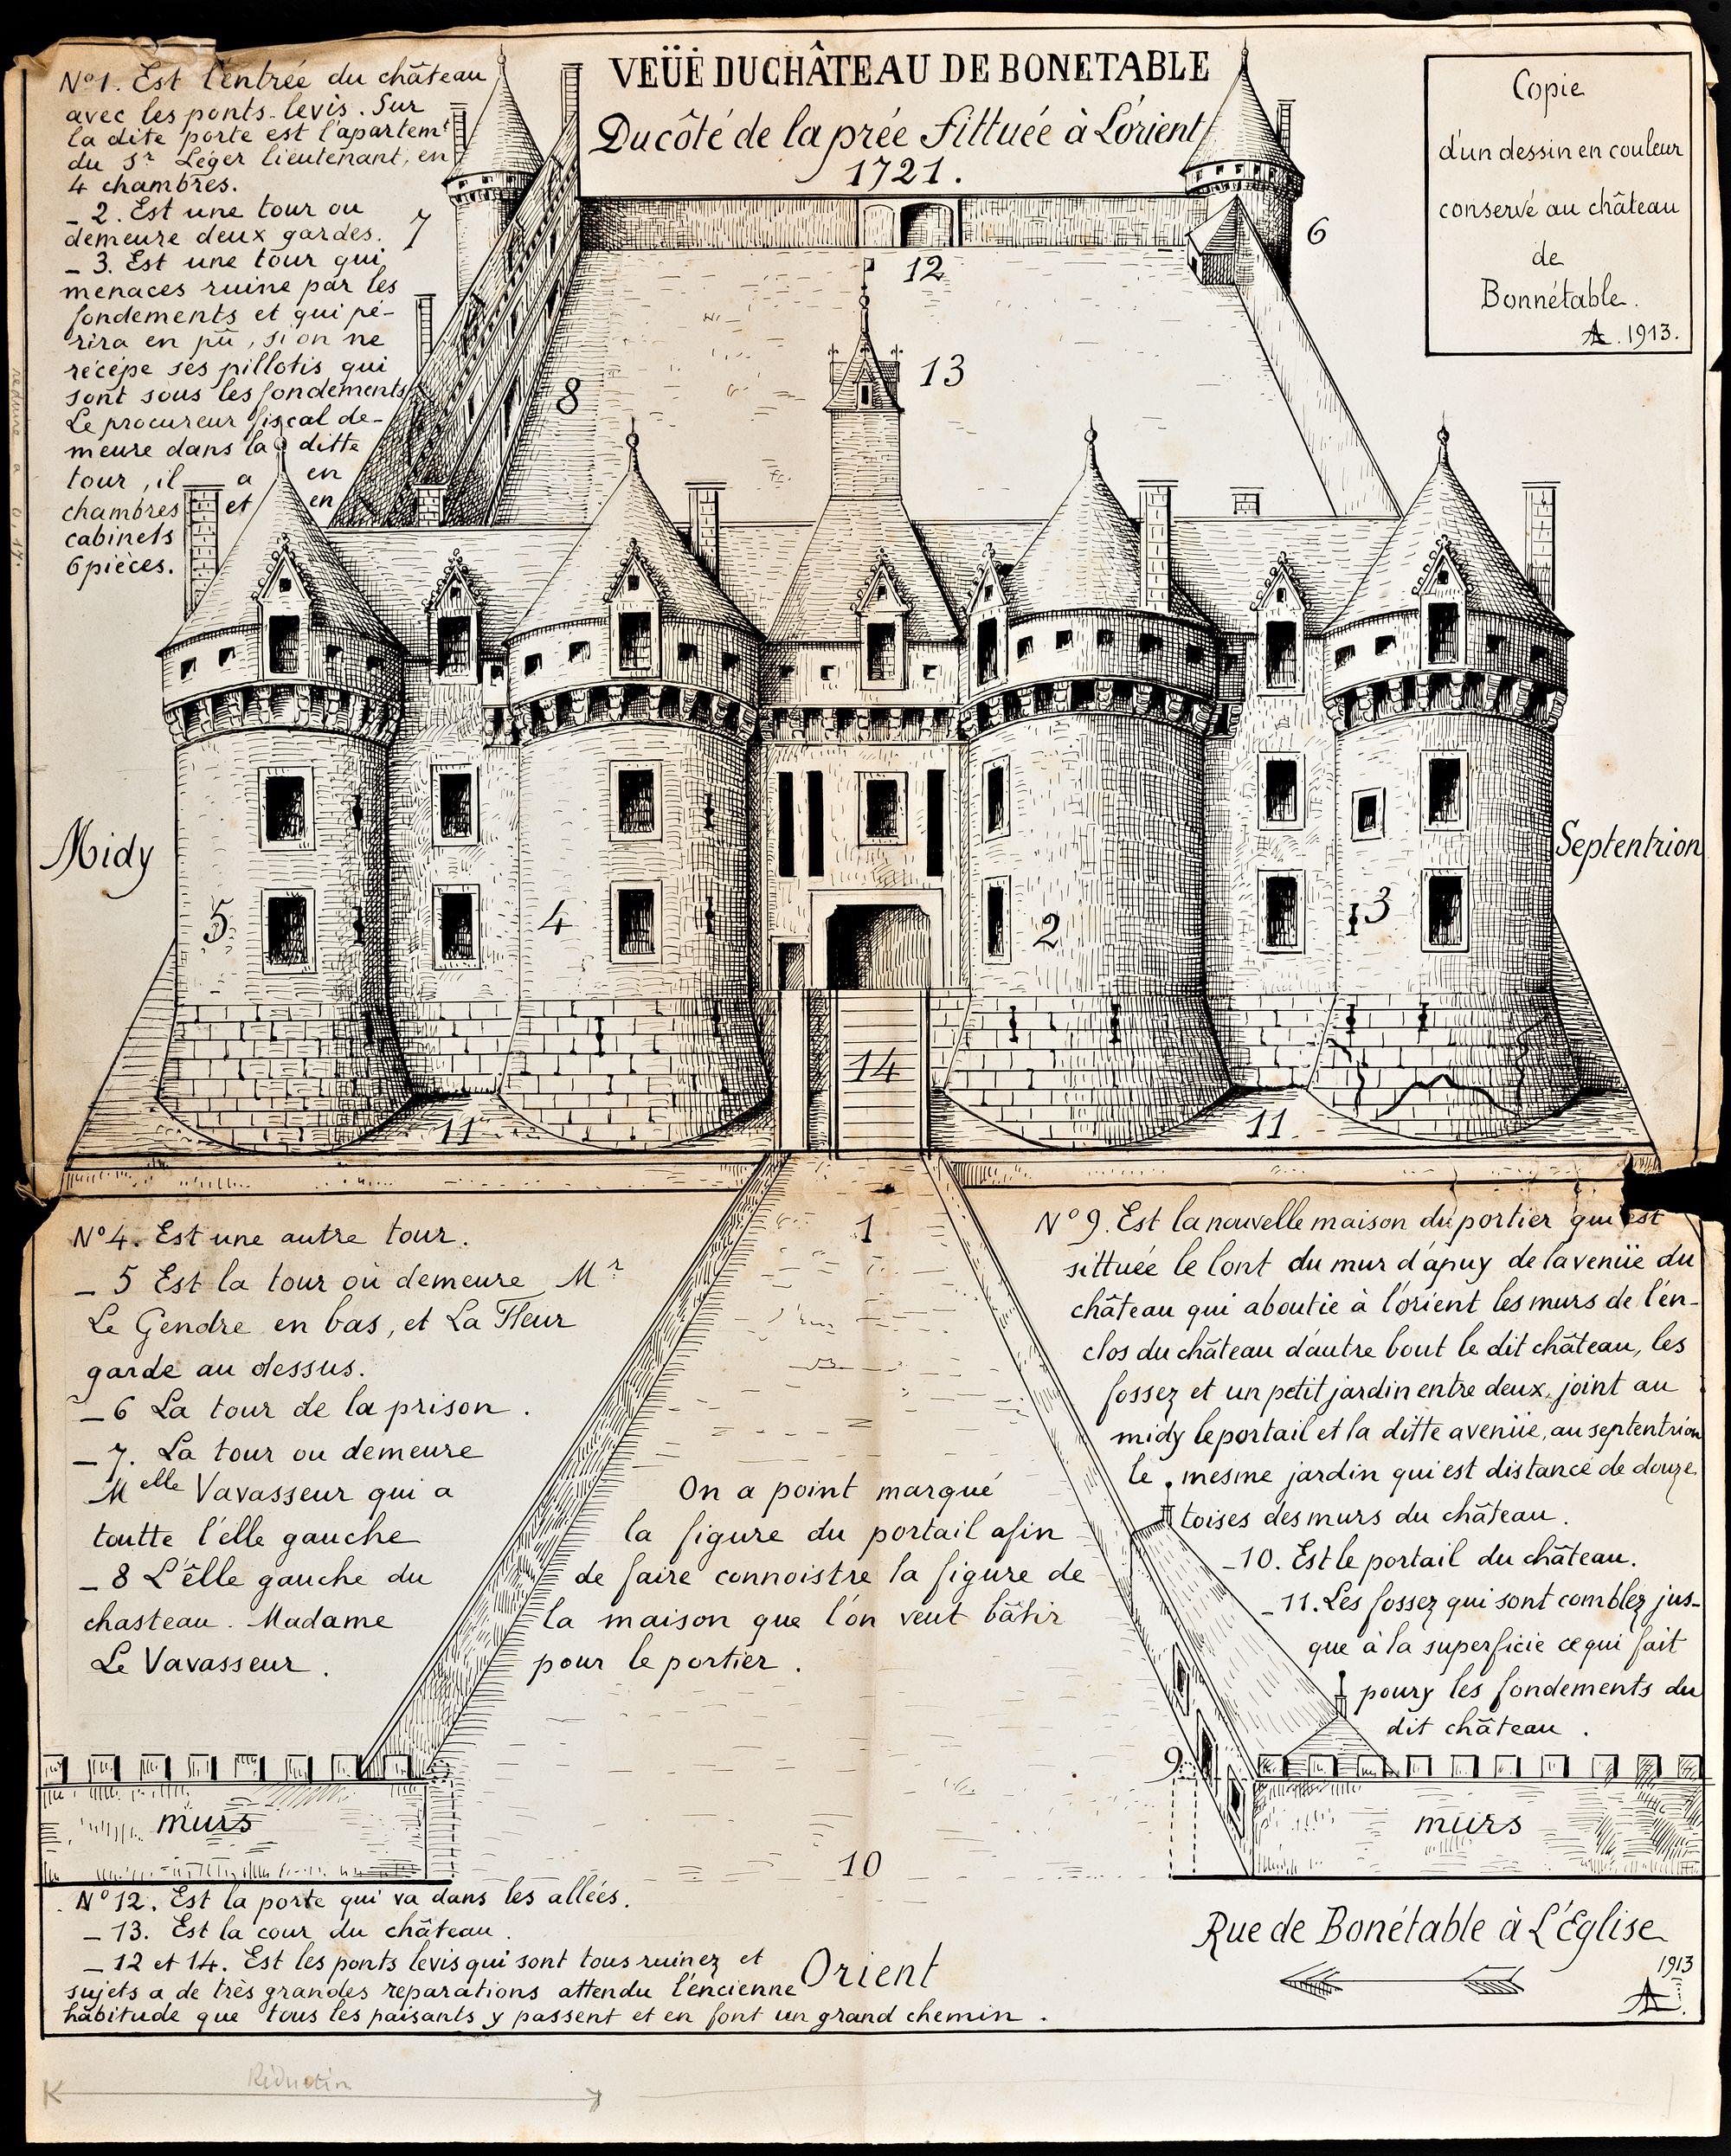 VEÜË DU CHÂTEAU DE BONETABLE
Du côté de la prée sittuée à L'orient
1721.
Copie
d'un dessin en couleur
conservé au château
de
Bonnétable.
A. 1913.
N°1. Est l'entrée du château
avec les ponts-levis. Sur
la dite porte est l'apartemt
du sr Léger lieutenant, en
4 chambres.
_ 2. Est une tour ou
demeure deux gardes.
_ 3. Est une tour qui
menaces ruine par les
fondements et qui pé-
rira en pü, si on ne
récépe ses pillotis qui
sont sous les fondements
Le procureur fiscal de-
meure dans la ditte
tour, il a en
chambres et en
cabinets
6 pièces.
7
6
12
13
8
Midy
Septentrion
5
4
2
3
14
11
11
1
N°4. Est une autre tour.
_ 5 Est la tour où demeure Mr
Le Gendre en bas, et La Fleur
garde au dessus.
_ 6 La tour de la prison.
_ 7. La tour ou demeure
Melle Vavasseur qui a
toutte l'élle gauche
_ 8 L'élle gauche du
chasteau. Madame
Le Vavasseur.
On a point marqué
la figure du portail afin
de faire connoistre la figure de
la maison que l'on veut bâtir
pour le portier.
N°9. Est la nouvelle maison du portier qui est
sittuée le lont du mur d'apuy de lavenüe du
château qui aboutie à l'orient les murs de l'en-
clos du château d'autre bout le dit château, les
fossez et un petit jardin entre deux, joint au
midy le portail et la ditte avenüe, au septentrion
le mesme jardin qui est distance de douze
toises des murs du château.
_ 10. Est le portail du château.
_ 11. Les fossez qui sont comblez jus-
que à la superficie ce qui fait
poury les fondements du
dit château.
9
murs
murs
10
N°12. Est la porte qui va dans les allées.
_ 13. Est la cour du château.
_ 12 et 14. Est les ponts levis qui sont tous ruinez et
sujets a de très grandes reparations attendu l'encienne
habitude que tous les paisants y passent et en font un grand chemin.
Orient
Rue de Bonétable à L'Église
1913
A.
Réduction